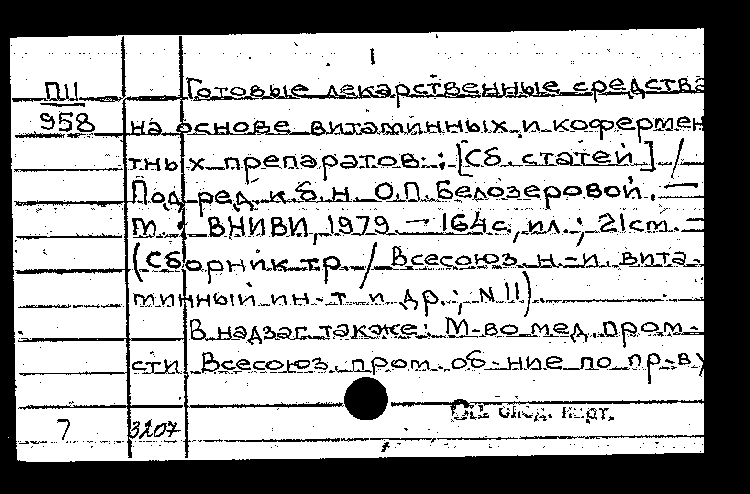 1
П11 Готовые лекарственные средства
958 на основе витаминных и кофермен
тных препаратов: : [Сб. статей] /
Под ред. к.б.н. О.П. Белозеровой. —
М.: ВНИВИ, 1979. — 164с., ил.; 21см. —
(Сборник тр. / Всесоюз. н.-и. вита-
минный ин-т и др.; N 11).
В надзаг. также: М-во мед. пром-
сти, Всесоюз. пром. об-ние по пр-ву
7 3207